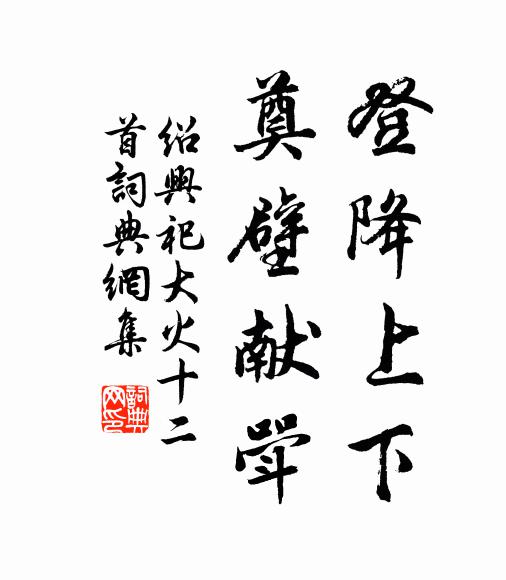 登降上下
奠璧献斝
绍興祀大火十二
首詞典網集
詞典
网印